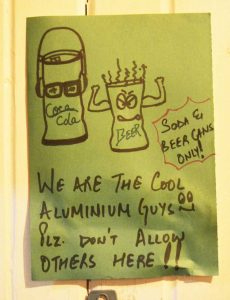 Coca
Cola
BEER
SODA &
BEER CANS
ONLY!
WE ARE THE COOL
ALUMINIUM GUYS
PLZ. DON'T ALLOW
OTHERS HERE!!